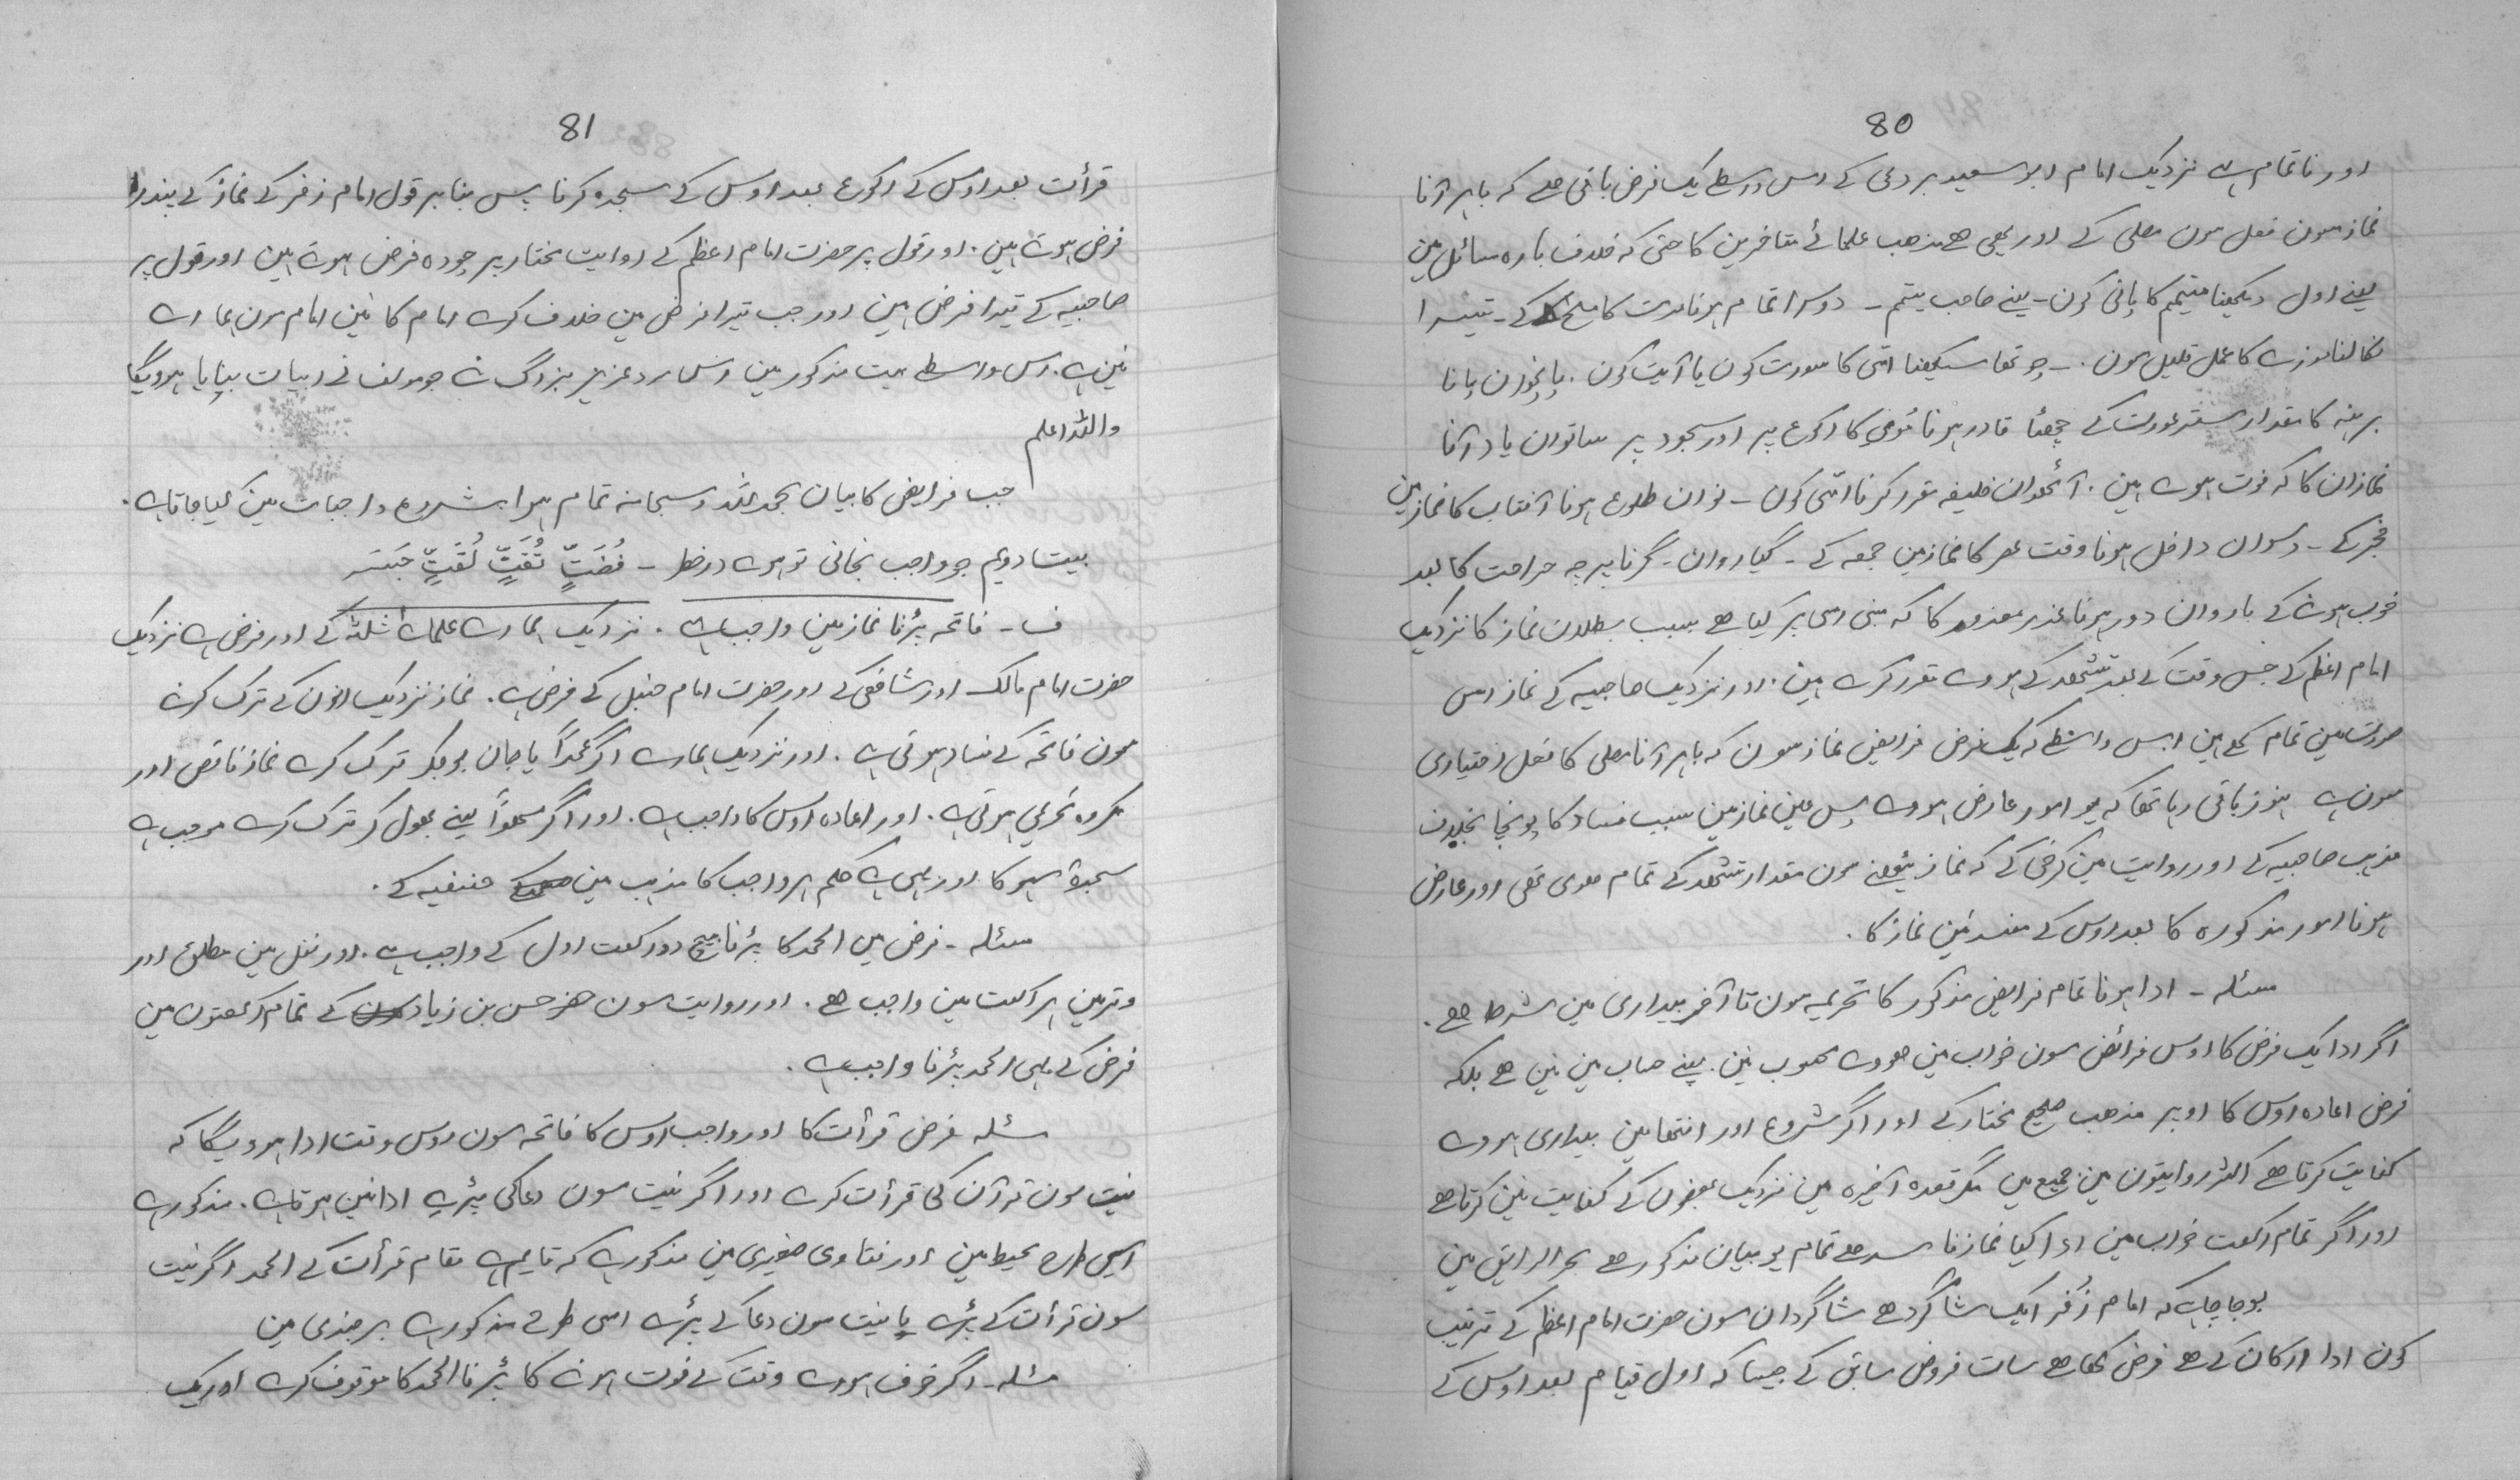 80
اور ناتمام ہے نزدیک امام ابو سعید بردعی کے اس واسطے یک فرض باقی ہے کہ باہر آنا
نماز سون فعل سون مصلی کے اور یہی ہے مذہب علمائے متاخرین کا حتی کہ خلاف بارہ مسائل مین
یعنے اول دیکھنا متیمم کا پانی کون ـ یعنے صاحب تیمم ـ دوسرا تمام ہونا مدت کا مسح کے ـ تیسرا
نکالنا موزے کا عمل قلیل سون ـ چوتھا سیکھنا امّی کا سورت کون یا آیت کون . پانچوان پانا
برہنہ کا مقدار ستر عورت کے چھٹا قادر ہونا مُومی کا رکوع پر اور سجود پر ساتوان یاد آنا
نمازان کا کہ فوت ہوے ہین . آٹھوان خلیفہ مقرر کرنا امّی کون ـ نوان طلوع ہونا آفتاب کا نماز مین
فجر کے ـ دسوان داخل ہونا وقت عصر کا نماز مین جمعہ کے ـ گیاروان ـ گرنا پرچہ جراحت کا بعد
خوب ہونے کے باروان دور ہونا عذر معذور کا کہ مبنی اسی پر کیا ہے بسبب بطلان نماز کا نزدیک
امام اعظم کے جس وقت کے بعد تشھد کے ہووے مقرر کرے ہین . اور نزدیک صاحبیہ کے نماز اس
صورت مین تمام ہین اس واسطے کہ یک فرض فرایض نماز سون کہ باہر آنا مصلی کا فعل اختیاری
سون ہے ہنوز باقی رہا تھا کہ یو امور عارض ہووے پس عین نماز مین سبب فساد کا پونچا بخلاف
مذہب صاحبیہ کے اور روایت مین کرخی کے کہ نماز بیٹھنے سون مقدار تشھد کے تمام ہوی تھی اور عارض
ہونا امور مذکورہ کا بعد اوس کے مفسد نین نماز کا .
مسئلہ ـ ادا ہونا تمام فرایض مذکور کا تحریمہ سون تا آخر بیداری مین شرط ہے .
اگر ادا یک فرض کا اوس فرائض سون خواب مین ہووے محسوب نین . یعنے حساب مین نین ہے بلکہ
فرض اعادہ اوس کا اوپر مذھب صحیح مختار کے اور اگر شروع اور انتھا مین بیداری ہووے
کفایت کرتا ہے اکثر روایتون مین جمیع مین مگر قعدہ آخیرہ مین نزدیک بعضون کے کفایت نین کرتا ہے
اور اگر تمام رکعت خواب مین ادا کیا نماز فاسد ہے تمام یو بیان مذکور ہے بحر الرایق مین
بوجا چاہے کہ امام زُفر ایک شاگرد ہے شاگردان سون حضرت امام اعظم کے ترتیب
کون ادا ارکان کے ہے فرض کھا ہے سات فروض سابق کے جیسا کہ اول قیام بعد اوس کے
81
قرأت بعد اوس کے رکوع بعد اوس کے سجدہ کرنا پس بنا بر قول امام زفر کے نماز کے پندرا
فرض ہوتے ہین . اور قول پر حضرت امام اعظم کے روایت مختار پر چودہ فرض ہوتے ہین اور قول پر
صاحبیہ کے تیرا فرض ہین اور جب تیرا فرض مین خلاف کرے امام کا نین امام سون ہمارے
نین ہے . اس واسطے بیت مذکور مین اس مرد عزیز بزرگ نے جو مولف نے ابیات بنایا ہرویگا
واللہ اعلم
جب فرایض کا بیان بحمد للہ و سبحانہ تمام ہوا شروع واجبات مین کیا جاتا ہے .
بیت دویم جو واجب بجانی تو ہوے در خطر ـ فُضَتٍّ تُقَتٍّ لُقَتٍّ جَبَسَہ
ف ـ فاتحہ پڑنا نماز مین واجب ہے . نزدیک ہمارے علماے ثلثہ کے اور فرض ہے نزدیک
حضرت امام مالک اور شافعی کے اور حضرت امام حنبل کے فرض ہے . نماز نزدیک انون کے ترک کرنے
سون فاتحہ کے فساد ہوتی ہے . اور نزدیک ہمارے اگر عمداً یا جان بوجکر ترک کرے نماز ناقص اور
مکروہ تحریمی ہوتی ہے . اور اعادہ اوس کا واجب ہے . اور اگر سھواً یعنے بھول کر ترک کرے موجب ہے
سجدۂ سہو کا اور یہی ہے حکم ہر واجب کا مذہب مین حنفیہ کے .
مسئلہ ـ فرض مین الحمد کا پڑنا بیچ دو رکعت اول کے واجب ہے . اور نفل مین مطلق اور
وتر مین ہر رکعت مین واجب ہے . اور روایت سون حضرت حسن بن زیاد کے تمام رکعتون مین
فرض کے بھی الحمد پڑنا واجب ہے .
مسئلہ فرض قرأت کا اور واجب اوس کا فاتحہ سون اوس وقت ادا ہرویگا کہ
نیت سون قرآن کی قرأت کرے اور اگر نیت سون دعا کی پڑے ادا نین ہوتا ہے . مذکور ہے
اسی طرح محیط مین اور فتاوی صغیری مین مذکور ہے کہ قایم ہے مقام قرأت کے الحمد اگر نیت
سون قرأت کے پڑے یا نیت سون دعا کے پڑے اسی طرح مذکور ہے برجندی مین
مسئلہ ـ اگر خوف ہووے وقت کے فوت ہونے کا پڑنا الحمد کا موقوف کرے اور یک